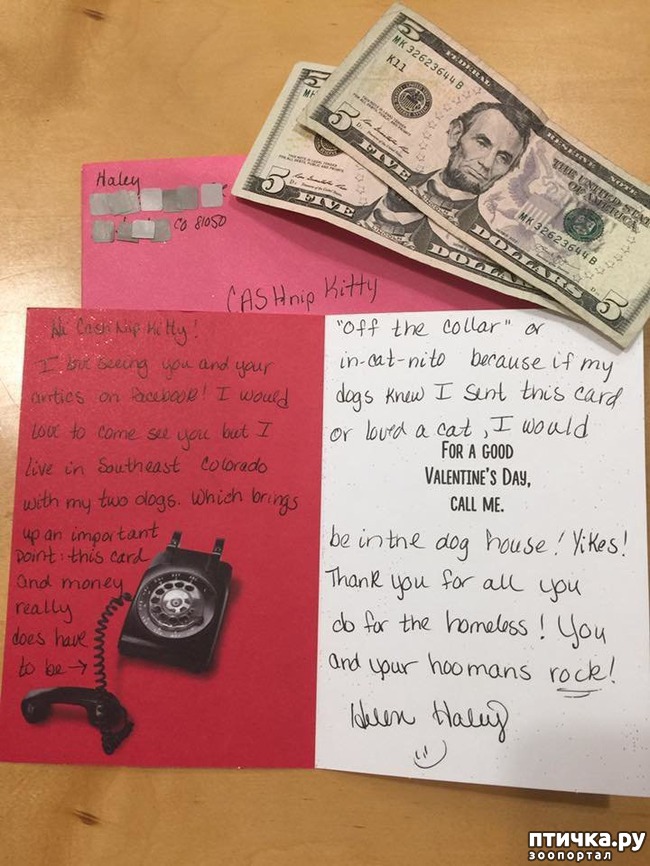 Haley
CO 81050
CASHnip Kitty
FEDERAL RESERVE NOTE
THE UNITED STATES
OF AMERICA
MK 32623644 B
K11
5
FIVE
DOLLARS
MK 32623644 B
5
5
5
FIVE
DOLLARS
Hi Cash Nip Kitty!
I love seeing you and your
antics on Facebook! I would
love to come see you but I
live in Southeast Colorado
with my two dogs. Which brings
up an important
point: this card
and money
really
does have
to be →
"off the collar" or
in-cat-nito because if my
dogs knew I sent this card
or loved a cat, I would
FOR A GOOD
VALENTINE'S DAY,
CALL ME.
be in the dog house! Yikes!
Thank you for all you
do for the homeless! You
and your hoomans rock!
Helen Haley
птичка.ру
зоопортал